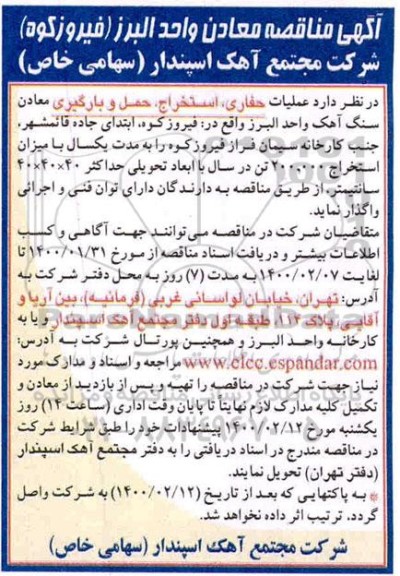 آگهی مناقصه معادن واحد البرز (فیروزکوه)
شرکت مجتمع آهک اسپندار (سهامی خاص)
در نظر دارد عملیات حفاری، استخراج، حمل و بارگیری معادن
سنگ آهک واحد البرز واقع در: فیروزکوه، ابتدای جاده قائمشهر،
جنب کارخانه سیمان فراز فیروزکوه را به مدت یکسال با میزان
استخراج ۲۰۰،۰۰۰ تن در سال با ابعاد تحویلی حداکثر ۴۰×۴۰×۴۰
سانتیمتر از طریق مناقصه به دارندگان دارای توان فنی و اجرائی
واگذار نماید.
متقاضیان شرکت در مناقصه می‌توانند جهت آگاهی و کسب
اطلاعات بیشتر و دریافت اسناد مناقصه از مورخ ۱۴۰۰/۰۱/۳۱ تا
لغایت ۱۴۰۰/۰۲/۰۷ به مدت (۷) روز به محل دفتر شرکت به
آدرس: تهران، خیابان لواسانی غربی (فرمانیه)، بین آریا و
آقایی، پلاک ۱۱۴، طبقه اول دفتر مجتمع آهک اسپندار و یا به
کارخانه واحد البرز و همچنین پورتال شرکت به آدرس:
www.clcc.espandar.com مراجعه و اسناد و مدارک مورد
نیاز جهت شرکت در مناقصه را تهیه و پس از بازدید از معادن و
تکمیل کلیه مدارک لازم نهایتاً تا پایان وقت اداری (ساعت ۱۴) روز
یکشنبه مورخ ۱۴۰۰/۰۲/۱۲ پیشنهادات خود را طبق شرایط شرکت
در مناقصه مندرج در اسناد دریافتی را به دفتر مجتمع آهک اسپندار
(دفتر تهران) تحویل نمایند.
* به پاکتهایی که بعد از تاریخ (۱۴۰۰/۰۲/۱۲) به شرکت واصل
گردد، ترتیب اثر داده نخواهد شد.
شرکت مجتمع آهک اسپندار (سهامی خاص)